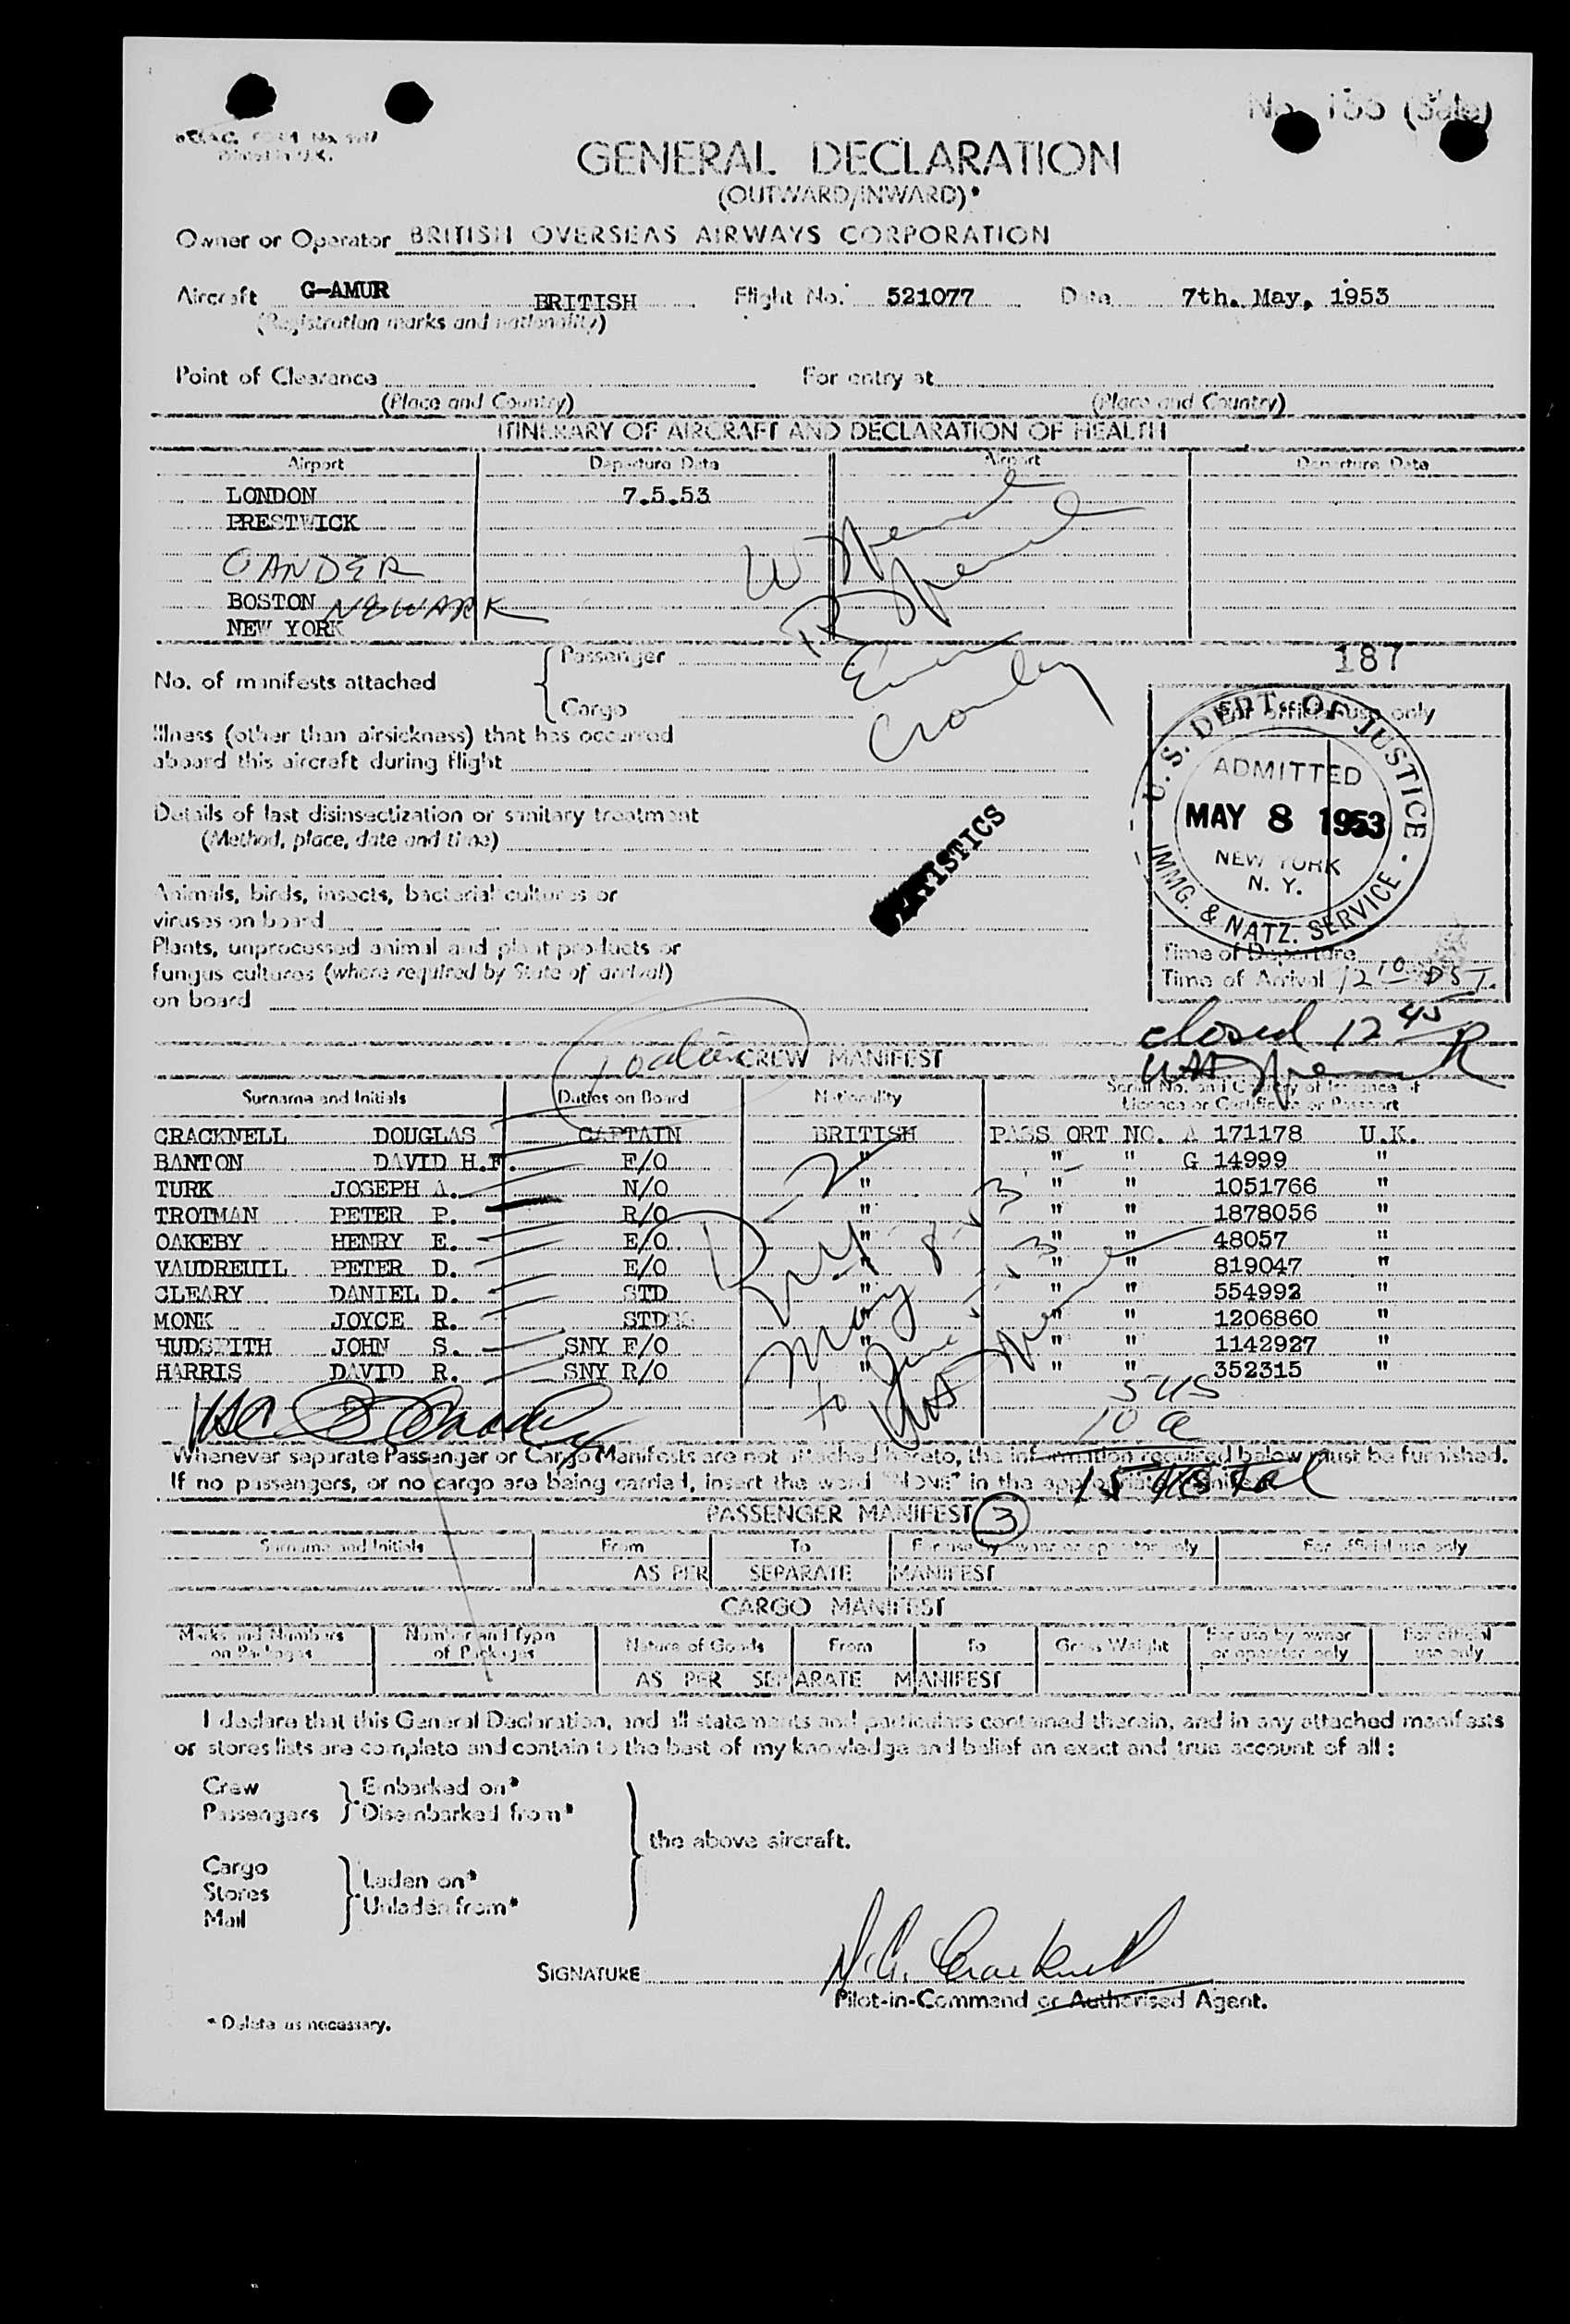 No. 133 (Sale)
GENERAL DECLARATION
(OUTWARD/INWARD)*
Owner or Operator BRITISH OVERSEAS AIRWAYS CORPORATION
Aircraft G-AMUR BRITISH Flight No. 521077 Date 7th. May, 1953
(Registration marks and nationality)
Point of Clearance For entry at
(Place and Country) (Place and Country)
ITINERARY OF AIRCRAFT AND DECLARATION OF HEALTH
Airport Departure Date Airport Departure Date
LONDON 7.5.53
PRESTWICK
GANDER
BOSTON NEWARK
NEW YORK
187
No. of manifests attached { Passenger
Cargo
For official use only
Illness (other than airsickness) that has occurred
aboard this aircraft during flight
U.S. DEPT. OF JUSTICE
ADMITTED
MAY 8 1953
NEW YORK
N. Y.
IMMG. & NATZ. SERVICE
Details of last disinsectization or sanitary treatment
(Method, place, date and time)
STATISTICS
Animals, birds, insects, bacterial cultures or
viruses on board
Plants, unprocessed animal and plant products or
fungus cultures (where required by State of arrival)
on board
Time of Departure
Time of Arrival 12 10 DST.
closed 12 45
CREW MANIFEST
Surname and Initials Duties on Board Nationality Serial No. and Country of Issuance of
Licence or Certificate or Passport
CRACKNELL DOUGLAS CAPTAIN BRITISH PASS ORT NO. A 171178 U.K.
BANTON DAVID H.F. F/O " " " G 14999 "
TURK JOSEPH A. N/O " " " 1051766 "
TROTMAN PETER P. R/O " " " 1878056 "
OAKEBY HENRY E. E/O " " " 48057 "
VAUDREUIL PETER D. E/O " " " 819047 "
CLEARY DANIEL D. STD " " " 554992 "
MONK JOYCE R. STDSS " " " 1206860 "
HUDSPITH JOHN S. SNY F/O " " " 1142927 "
HARRIS DAVID R. SNY R/O " " " 352315 "
5 US
10 a
15 total
Whenever separate Passenger or Cargo Manifests are not attached hereto, the information required below must be furnished.
If no passengers, or no cargo are being carried, insert the word "NONE" in the appropriate manifest.
PASSENGER MANIFEST 3
Surname and Initials From To For use by owner or operator only For official use only
AS PER SEPARATE MANIFEST
CARGO MANIFEST
Marks and Numbers on Packages Number and Type of Packages Nature of Goods From To Gross Weight For use by owner or operator only For official use only
AS PER SEPARATE MANIFEST
I declare that this General Declaration, and all statements and particulars contained therein, and in any attached manifests
or stores lists are complete and contain to the best of my knowledge and belief an exact and true account of all :
Crew } Embarked on*
Passengers } Disembarked from*
the above aircraft.
Cargo
Stores } Laden on*
Mail Unladen from*
SIGNATURE
Pilot-in-Command or Authorised Agent.
* Delete as necessary.